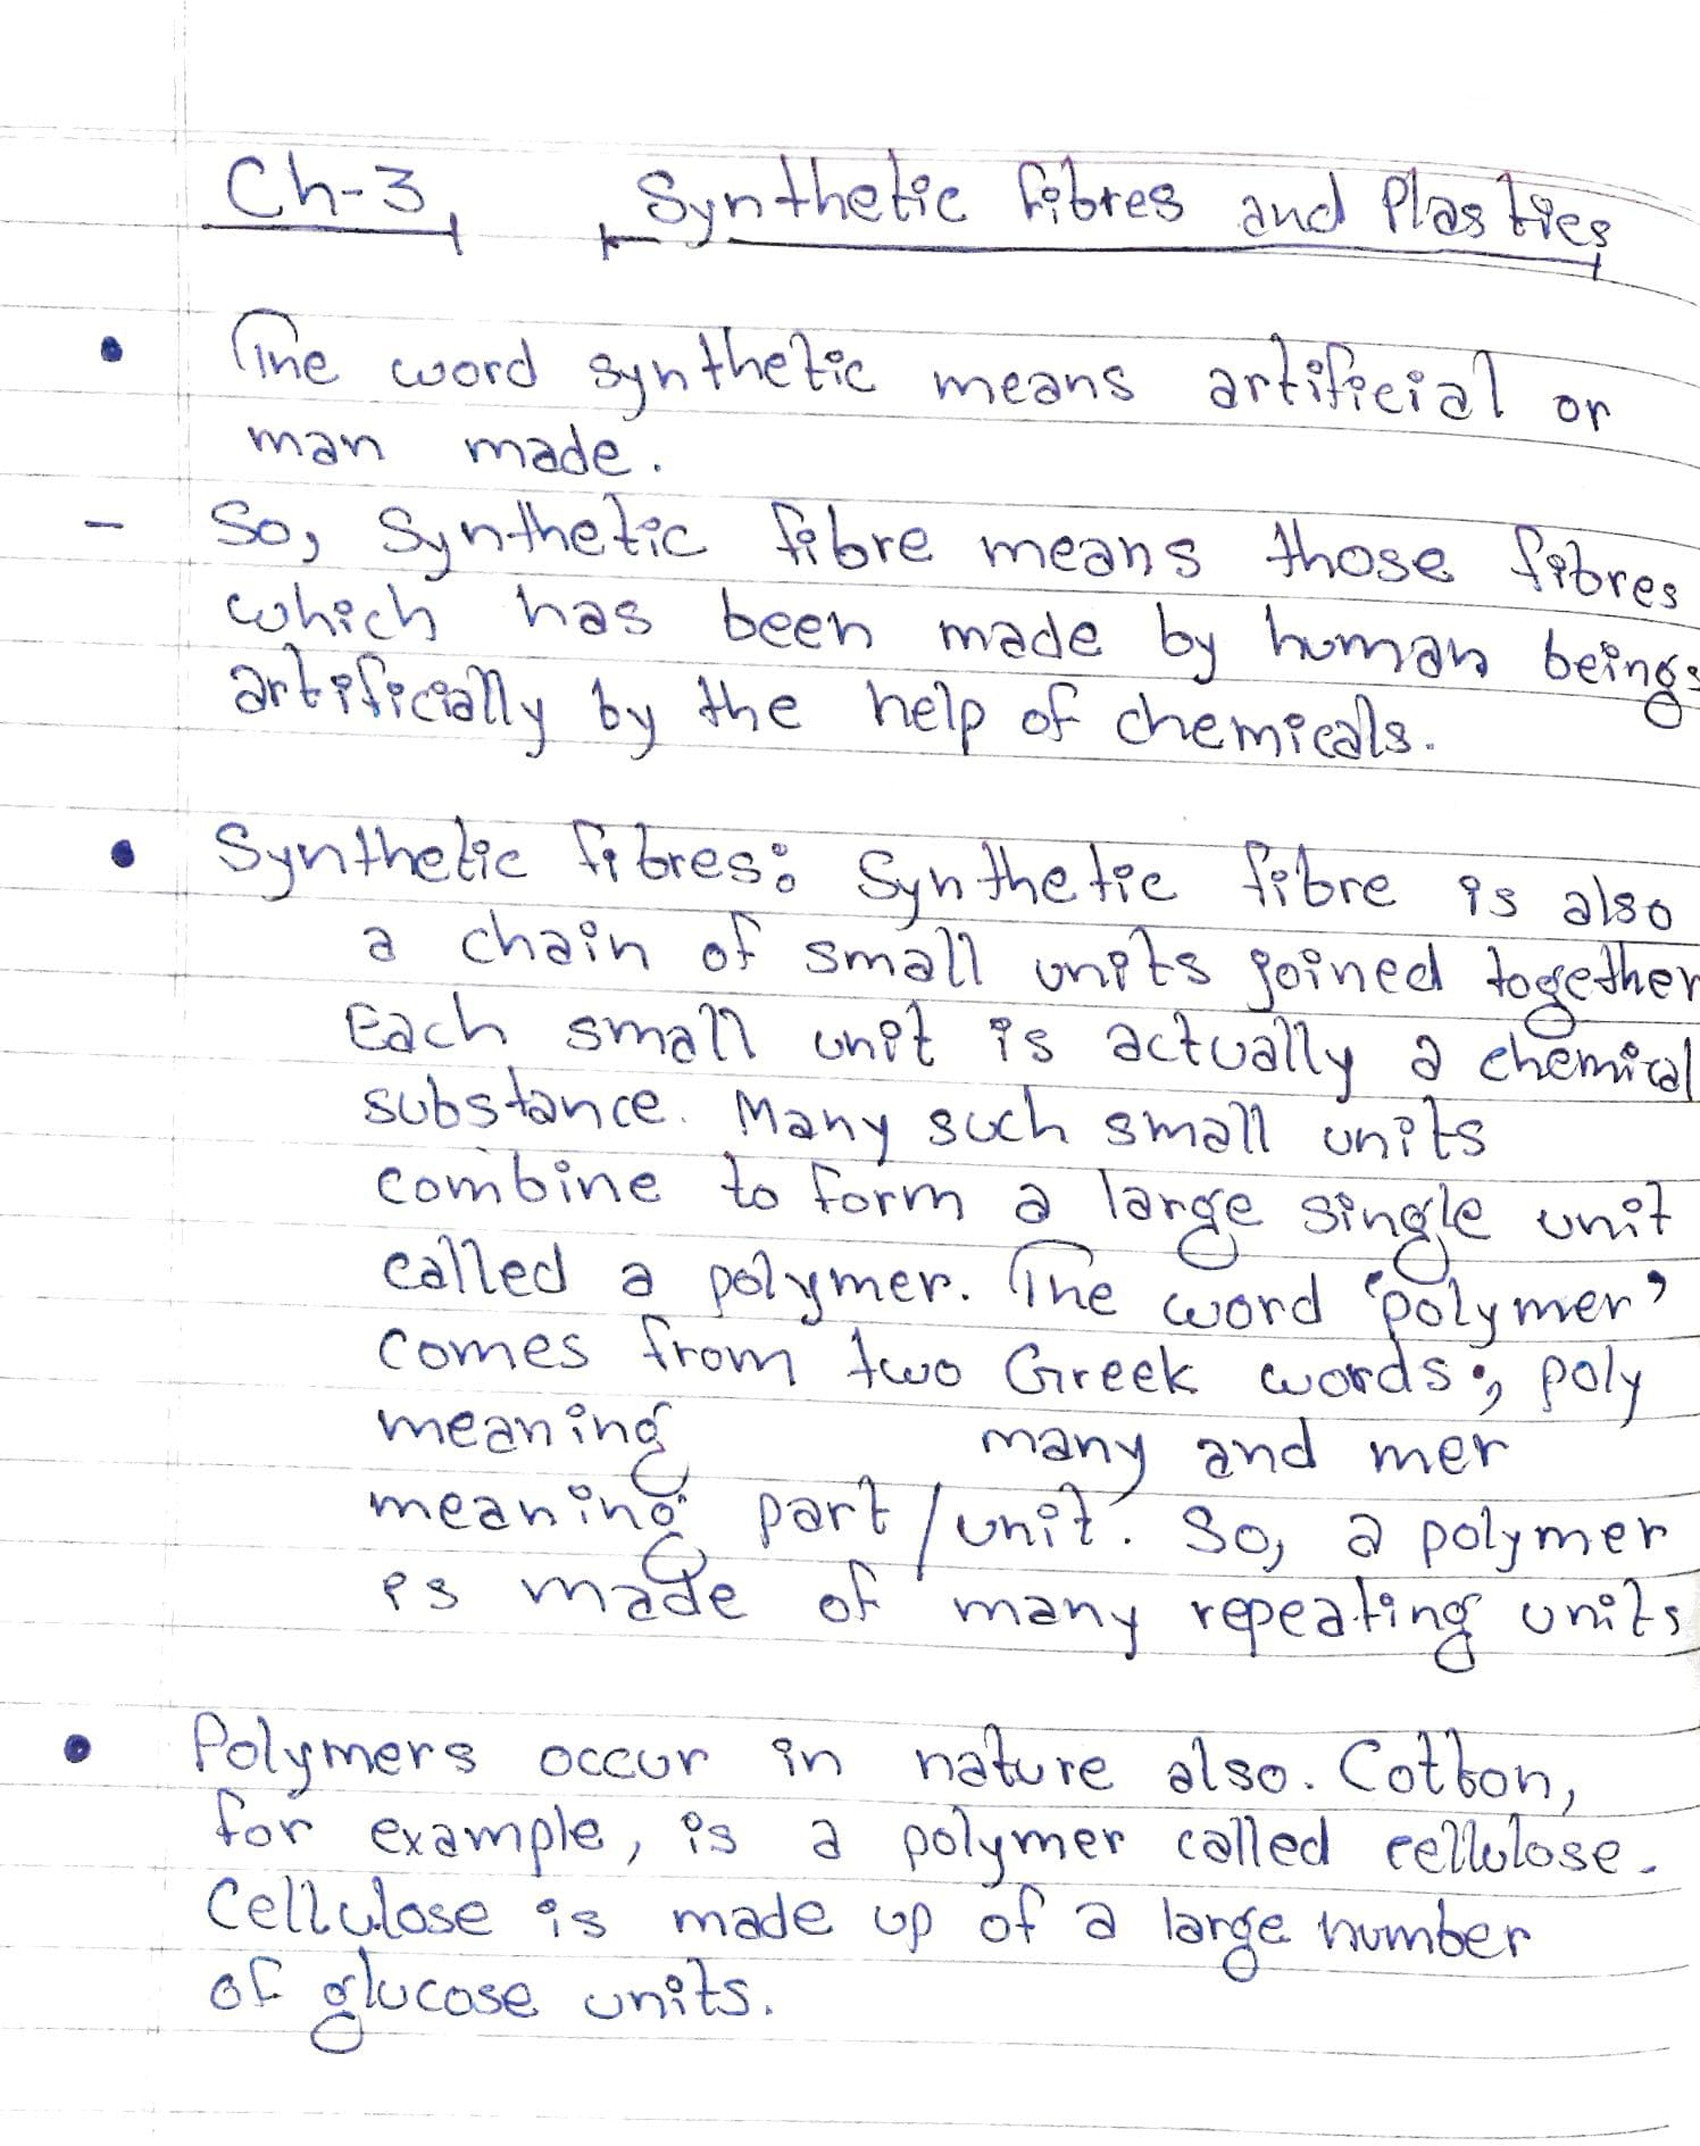 Ch-3, Synthetic fibres and Plastics
• The word synthetic means artificial or
man made.
– So, Synthetic fibre means those fibres
which has been made by human beings
artificially by the help of chemicals.
• Synthetic fibres: Synthetic fibre is also
a chain of small units joined together
Each small unit is actually a chemical
substance. Many such small units
combine to form a large single unit
called a polymer. The word ‘polymer’
comes from two Greek words; poly
meaning many and mer
meaning part/unit. So, a polymer
is made of many repeating units
• Polymers occur in nature also. Cotton,
for example, is a polymer called cellulose.
Cellulose is made up of a large number
of glucose units.